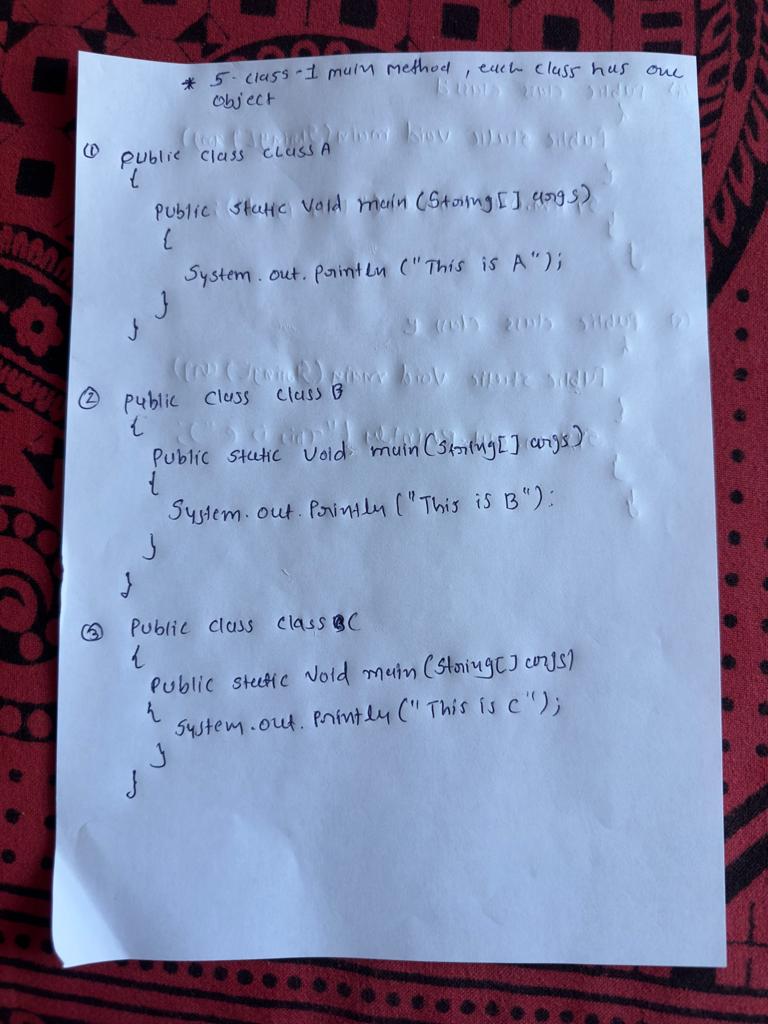 * 5-class-1 main method, each class has one
object
① public class class A
{
public static void main (String[] args)
{
System.out.println ("This is A");
}
}
② public class class B
{
public static void main (String[] args)
{
System.out.println ("This is B"):
}
}
③ Public class class C
{
public static void main (String[] args)
{ System.out.println (" This is C");
}
}